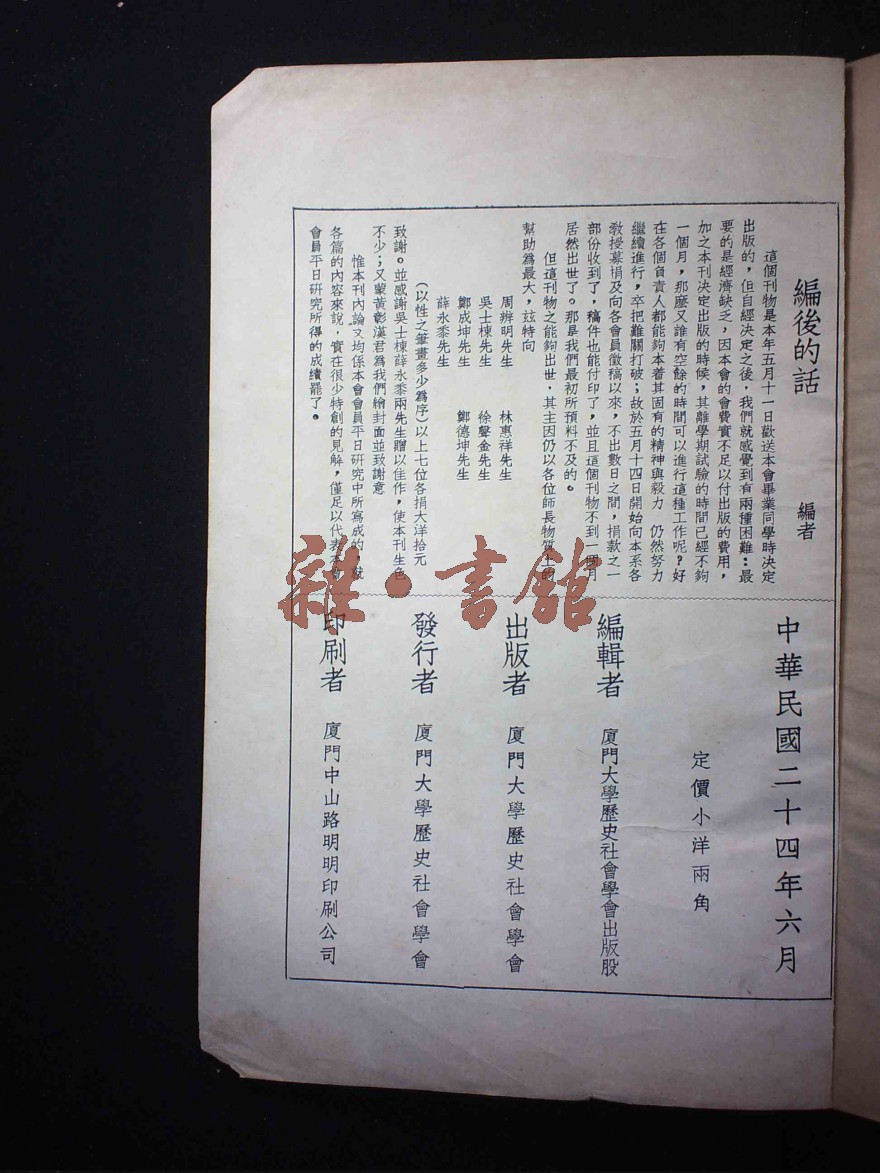 編後的話
編者
這個刊物是本年五月十一日歡送本會畢業同學時決定
出版的，但自經決定之後，我們就感覺到有兩種困難：最
要的是經濟缺乏，因本會的會費實不足以付出版的費用，
加之本刊決定出版的時候，其離學期試驗的時間已經不夠
一個月，那麼又誰有空餘的時間可以進行這種工作呢？好
在各個負責人都能夠本着其固有的精神與毅力　仍然努力
繼續進行，卒把難關打破；故於五月十四日開始向本系各
教授募捐及向各會員徵稿以來，不出數日之間，捐款之一
部份收到了，稿件也能付印了，並且這個刊物不到一個月
居然出世了。那是我們最初所預料不及的。
但這刊物之能夠出世．其主因仍以各位師長物質上的
幫助爲最大，玆特向
周辨明先生　林惠祥先生
吳士棟先生　徐聲金先生
鄭成坤先生　鄭德坤先生
薛永黍先生
（以性之筆畫多少爲序）以上七位各捐大洋拾元
致謝。並感謝吳士棟薛永黍兩先生贈以佳作，使本刊生色
不少；又蒙黃彰漢君爲我們繪封面並致謝意
惟本刊內論文均係本會會員平日研究中所寫成的，就
各篇的內容來說，實在很少特創的見解，僅足以代表本會
會員平日研究所得的成績罷了。
中華民國二十四年六月
定價小洋兩角
編輯者　廈門大學歷史社會學會出版股
出版者　廈門大學歷史社會學會
發行者　廈門大學歷史社會學會
印刷者　廈門中山路明明印刷公司
雜·書館